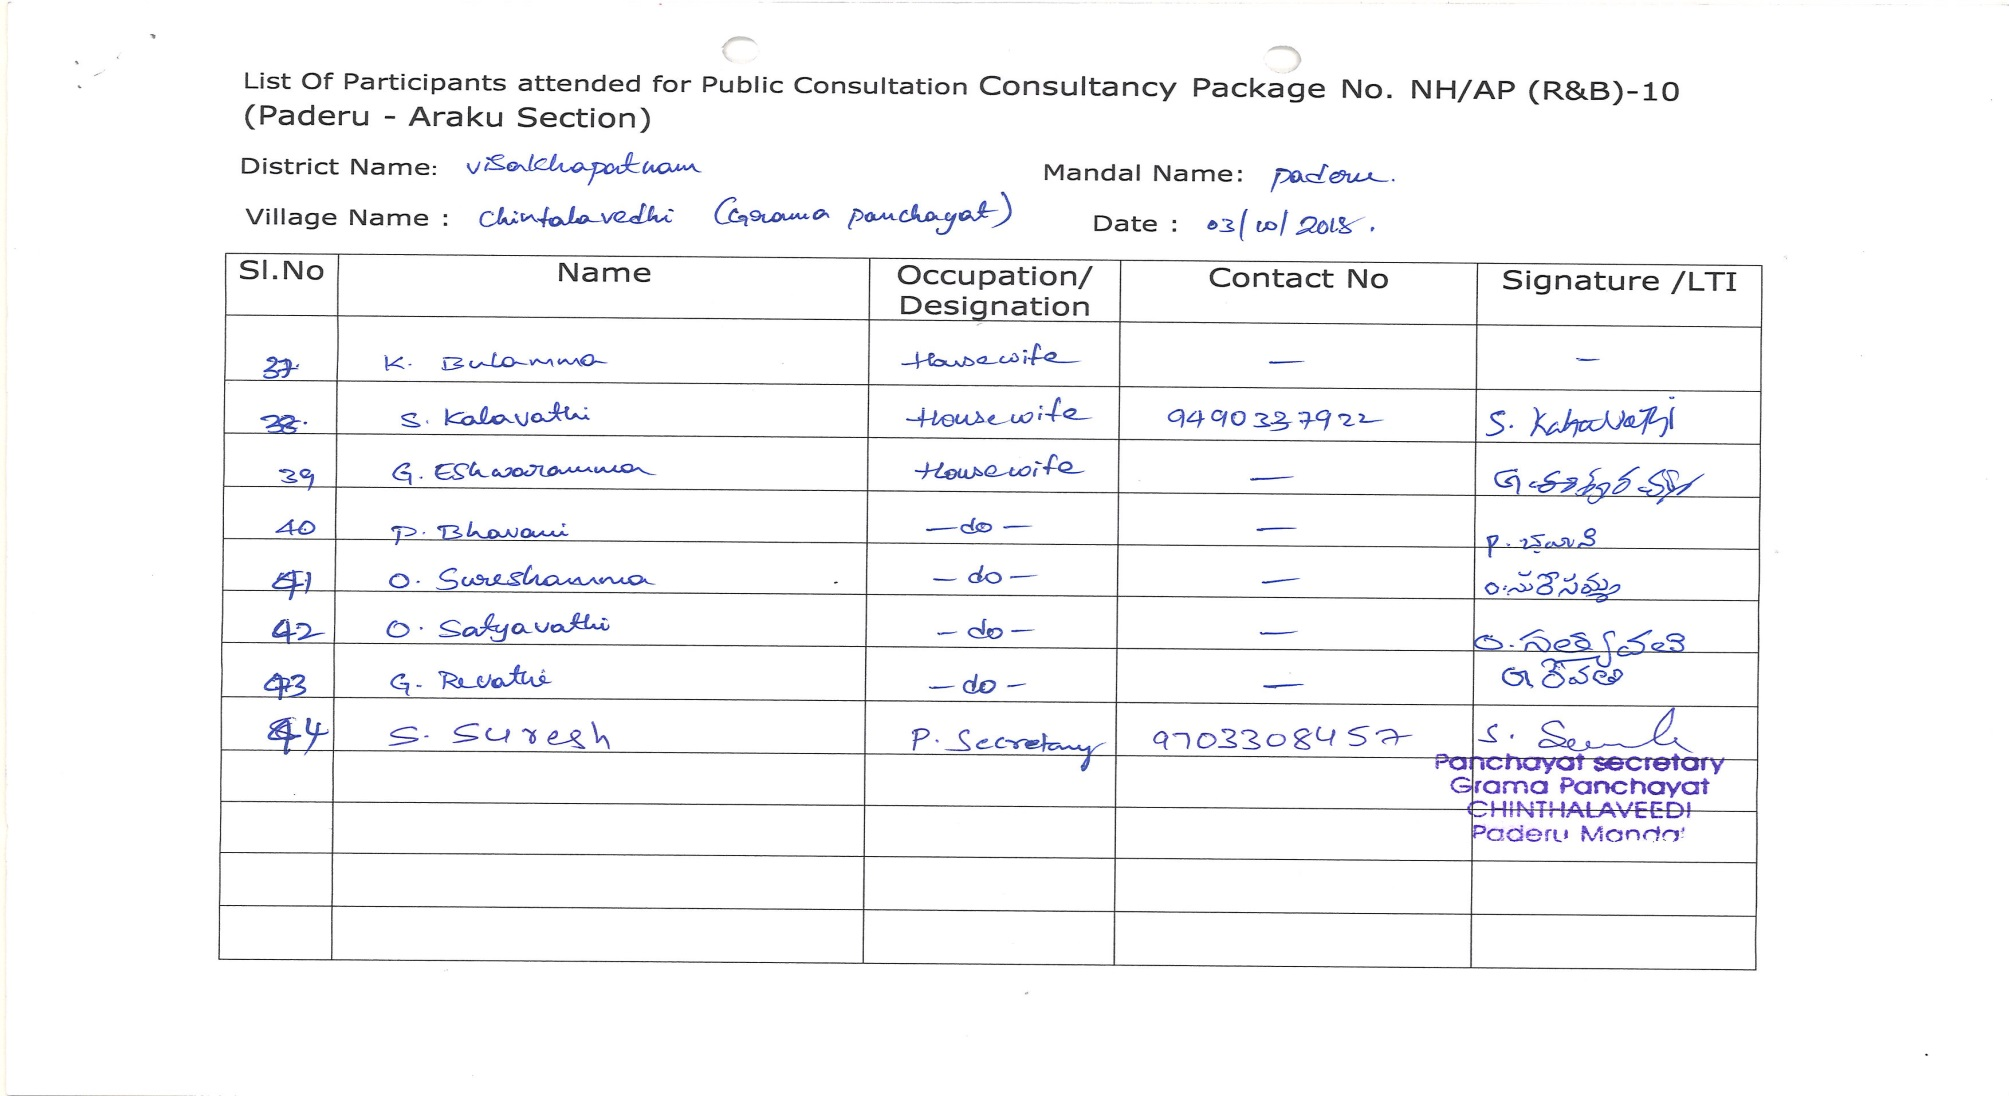 List Of Participants attended for Public Consultation Consultancy Package No. NH/AP (R&B)-10
(Paderu - Araku Section)
District Name: visakhapatnam Mandal Name: paderu.
Village Name : Chintalavedhi (Grama panchayat) Date : 03/10/2018.
Sl.No Name Occupation/ Designation Contact No Signature /LTI
37. K. Bulamma Housewife — —
38. S. Kalavathi Housewife 9490337922 S. Kalavathi
39 G. Eshwaramma Housewife — G ఈశ్వరమ్మ
40 P. Bhavani —do— — P. భవాని
41 O. Sureshamma —do— — O.సురేసమ్మ
42 O. Satyavathi —do— — O. సత్యవతి
43 G. Revathi —do— — G రేవతి
44 S. Suresh P. Secretary 9703308457 S. 
Panchayat secretary
Grama Panchayat
CHINTHALAVEEDI
Paderu Mandal